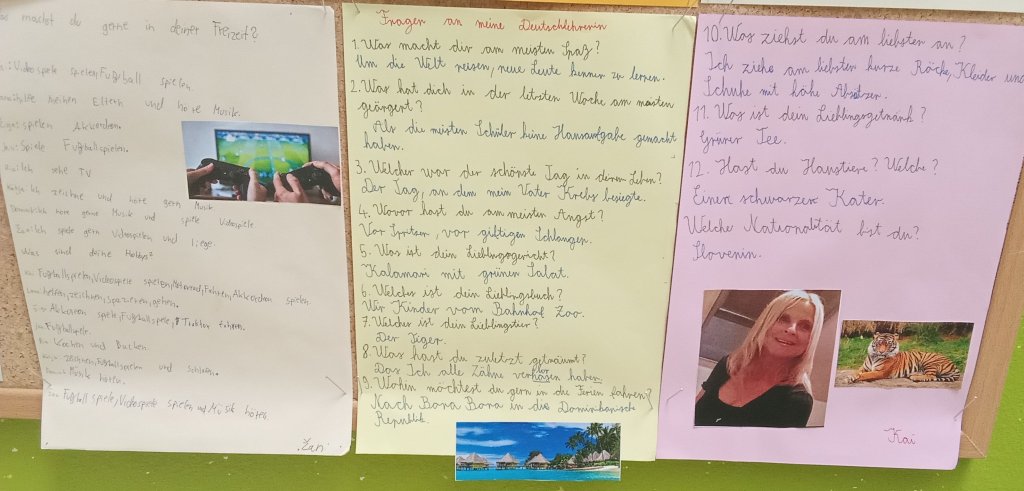 macht du gerne in deiner Freizeit?
Videospiele spielen, Fußball spielen.
meinen Eltern und höre Musik.
spielen Akkordeon.
Spiele Fußballspielen.
sehe TV
Ich zeichne und höre gern Musik
höre gerne Musik und spiele Videospiele
spiele gern Videospielen und liege.
sind deine Hobbys?
Fußballspielen, Videospiele spielen, Motorrad, Fahren, Akkordeon spielen
helfen, zeichnen, spazieren gehen.
spiele, Fußballspiele, Traktor fahren.
Fußballspiele.
Kochen und Backen.
zeichnen, Fußballspielen und schlafen.
Musik hören.
Fußball spiele, Videospiele spielen und Musik hören.
Žan
Fragen an meine Deutschlehrerin
1. Was macht dir am meisten Spaß?
Um die Welt reisen, neue Leute kennen zu lernen.
2. Was hat dich in der letzten Woche am meisten
geärgert?
Als die meisten Schüler keine Hausaufgabe gemacht
haben.
3. Welcher war der schönste Tag in deinen Leben?
Der Tag, an dem mein Vater Krebs besiegte.
4. Wovor hast du am meisten Angst?
Vor Spritzen, vor giftigen Schlangen.
5. Was ist dein Lieblingsgericht?
Kalamari mit grünen Salat.
6. Welches ist dein Lieblingsbuch?
Wir Kinder vom Bahnhof Zoo.
7. Welcher ist dein Lieblingstier?
Der Tiger.
8. Was hast du zuletzt geträumt?
Das Ich alle Zähne verloren haben
9. Wohin möchtest du gern in die Ferien fahren?
Nach Bora Bora in die Dominikanische
Republik.
10. Was ziehst du am liebsten an?
Ich ziehe am liebsten kurze Röcke, Kleider und
Schuhe mit höhe Absatzen.
11. Was ist dein Lieblingsgetränk?
Grüner Tee.
12. Hast du Haustiere? Welche?
Einen schwarzen Kater.
Welche Nationalität bist du?
Slovenin.
Kai